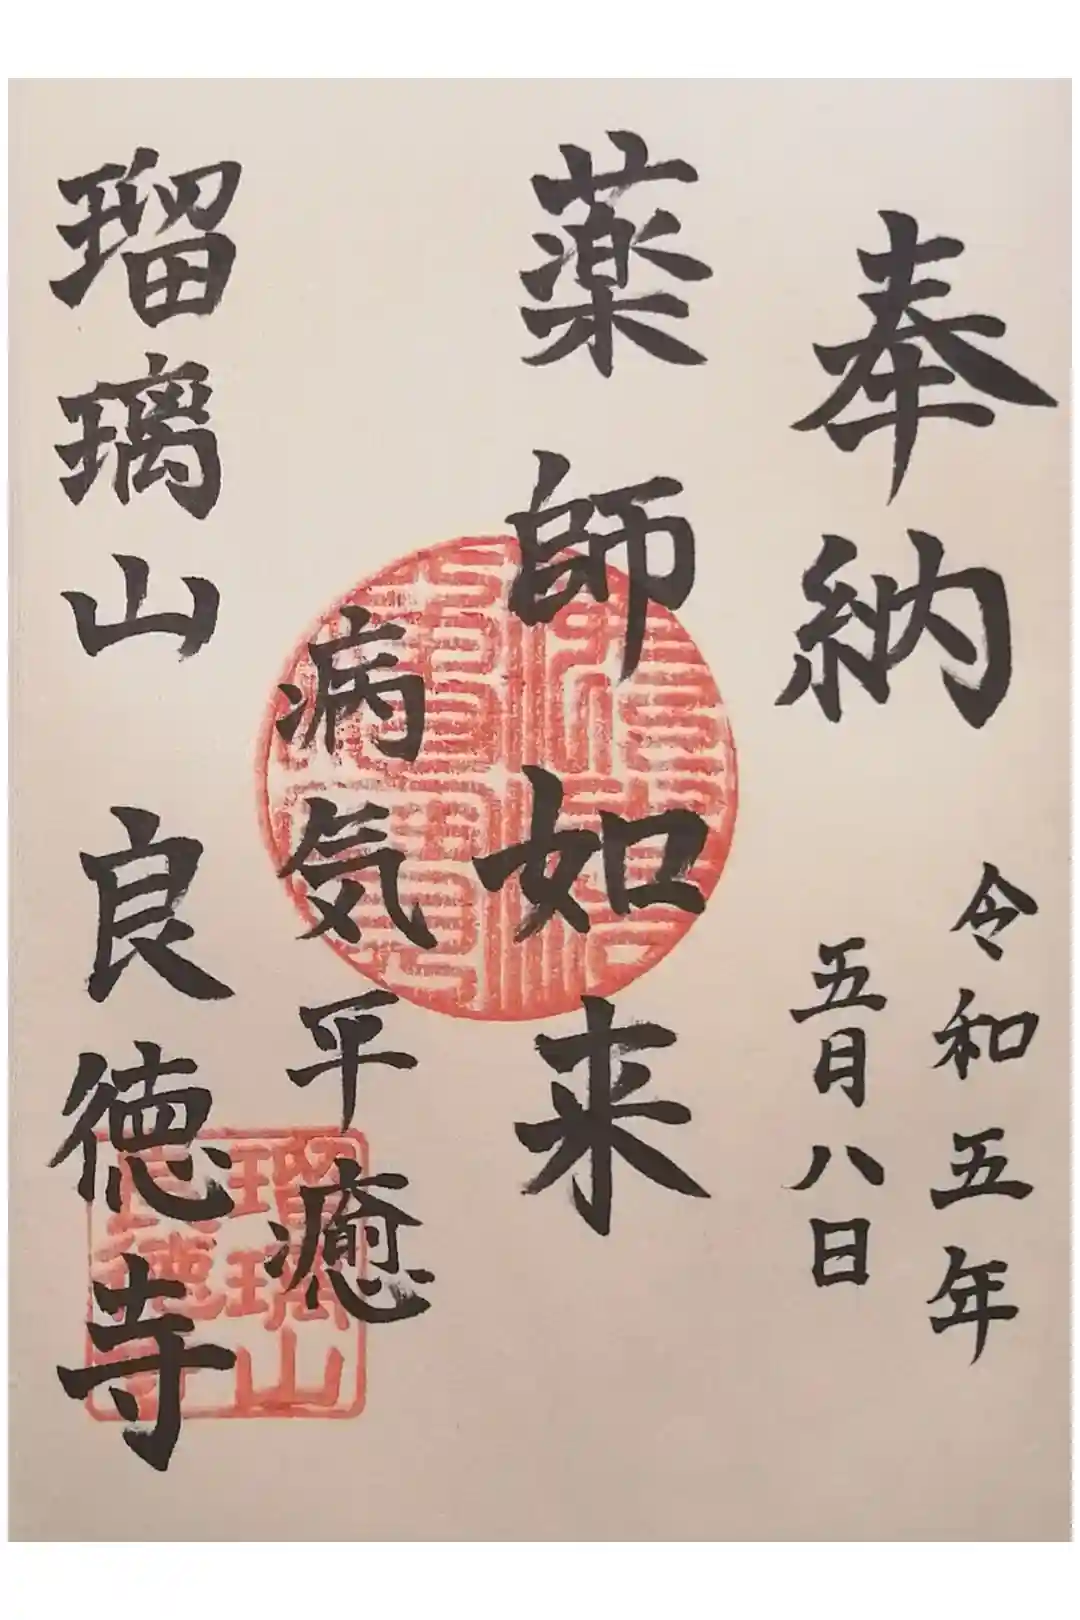 奉納
令和五年
五月八日
薬師如来
病気平癒
瑠璃山 良徳寺
瑠璃山